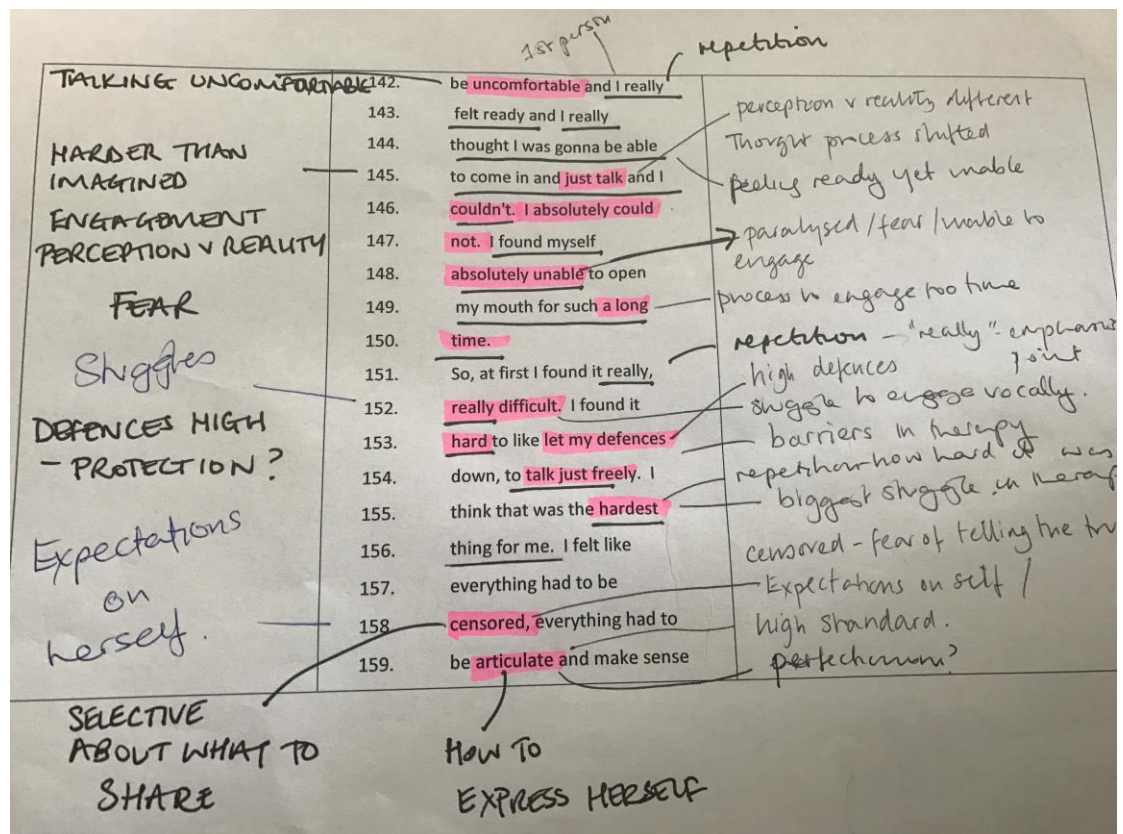 1st person
repetition
TALKING UNCOMFORTABLE
HARDER THAN
IMAGINED
ENGAGEMENT
PERCEPTION V REALITY
FEAR
Struggles
DEFENCES HIGH
– PROTECTION?
Expectations
on
herself.
142. be uncomfortable and I really
143. felt ready and I really
144. thought I was gonna be able
145. to come in and just talk and I
146. couldn't. I absolutely could
147. not. I found myself
148. absolutely unable to open
149. my mouth for such a long
150. time.
151. So, at first I found it really,
152. really difficult. I found it
153. hard to like let my defences
154. down, to talk just freely. I
155. think that was the hardest
156. thing for me. I felt like
157. everything had to be
158. censored, everything had to
159. be articulate and make sense
perception v reality different
Thought process shifted
feeling ready yet unable
paralysed/fear/unable to
engage
process to engage too time
repetition – "really" – emphasis
point
high defences
struggle to engage vocally.
barriers in therapy
repetition how hard it was
biggest struggle in therap
censored – fear of telling the tru
Expectations on self /
high standard.
perfectionism?
SELECTIVE
ABOUT WHAT TO
SHARE
HOW TO
EXPRESS HERSELF